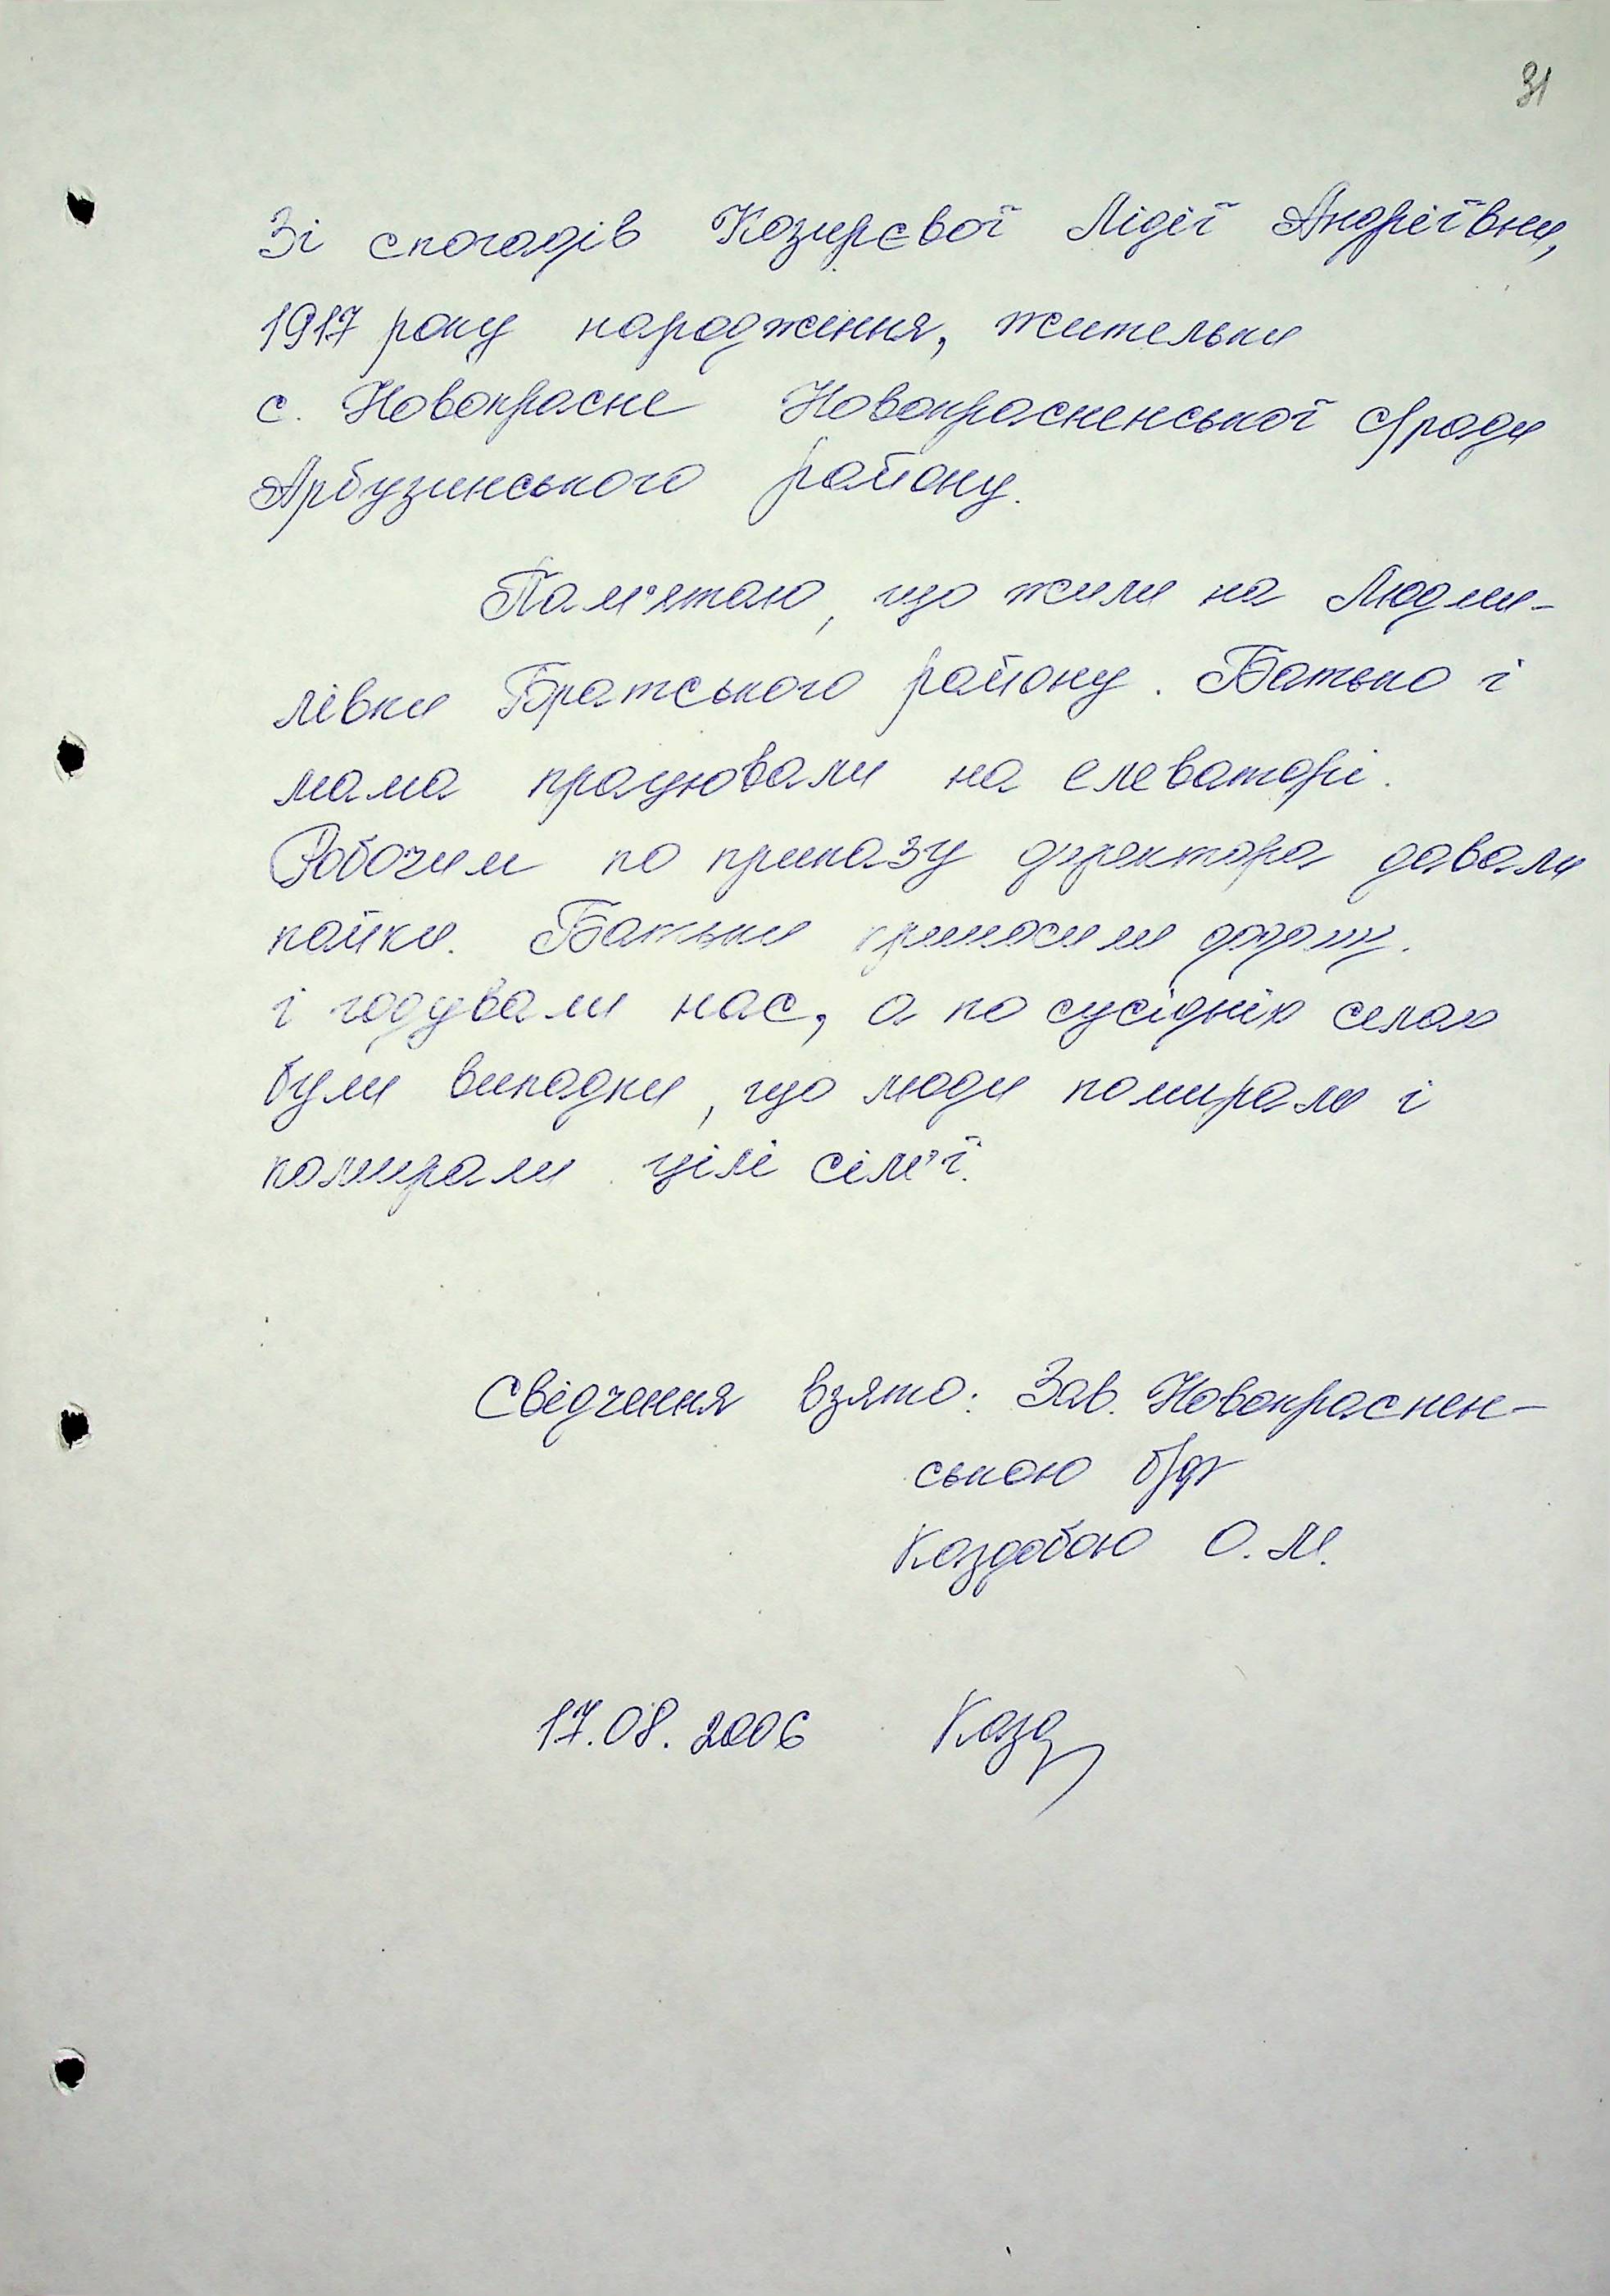 31
Зі спогадів Козирєвої Лідії Андріївни,
1917 року народження, жительки
с. Новокрасне Новокрасненської с/ради
Арбузинського району.
Пам'ятаю, що жили на Людми-
лівки Братського району. Батько і
мама працювали на елеваторі.
Робочим по приказу директора давали
пайки. Батьки приносили додому.
і годували нас, а по сусідніх селах
були випадки, що люди помирали і
помирали цілі сім'ї.
Свідчення взято: Зав. Новокраснен-
ською б/ф
Каздобою О.М.
17.08.2006 Казд